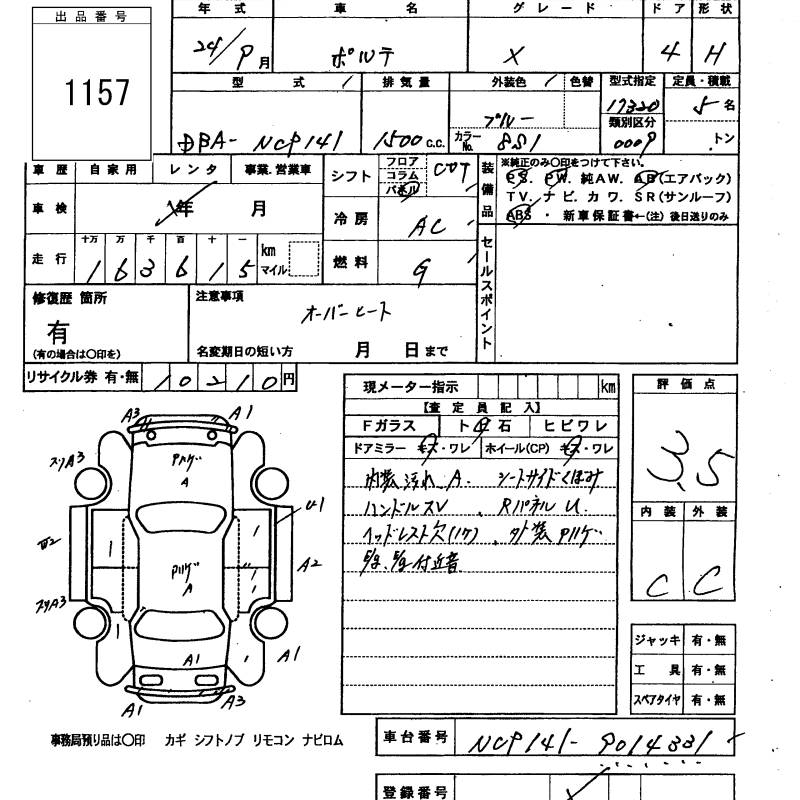 出品番号
1157
年式 車名 グレード ドア 形状
24/9月 ポルテ X 4 H
型式 排気量 外装色 色替 型式指定 定員・積載
17320 5名
ブルー 類別区分
DBA-NCP141 1500c.c. カラーNo. 8S1 0009 トン
車歴 自家用 レンタ 事業.営業車
シフト フロア コラム パネル COT
装備品
※純正のみ〇印をつけて下さい。
PS. PW. 純AW. AB(エアバック)
TV. ナビ. カワ. SR(サンルーフ)
ABS ・ 新車保証書←(注) 後日送りのみ
車検 年 月
冷房 AC
走行 十万 万 千 百 十 一
163615 km マイル
燃料 G
セールスポイント
修復歴 箇所
有
(有の場合は〇印を)
注意事項
オーバーヒート
名変期日の短い方 月 日まで
リサイクル券 有・無 10210円
現メーター指示 km
【査定員記入】
Fガラス ト石 ヒビワレ
ドアミラー キズ・ワレ ホイール(CP) キズ・ワレ
内装汚れ A. シートサイドくぼみ
ハンドルスレ. Rパネル U.
ヘッドレスト欠(1ケ). 外装PIハゲ
付近音
評価点
3.5
内装 外装
C C
A3 A1
PIハゲ
A
スリA3
U1
A2
PIハゲ
A
スリA3
A1
A1
A1 A3
ジャッキ 有・無
工具 有・無
スペアタイヤ 有・無
事務局預り品は〇印 カギ シフトノブ リモコン ナビロム
車台番号 NCP141-9014331
登録番号